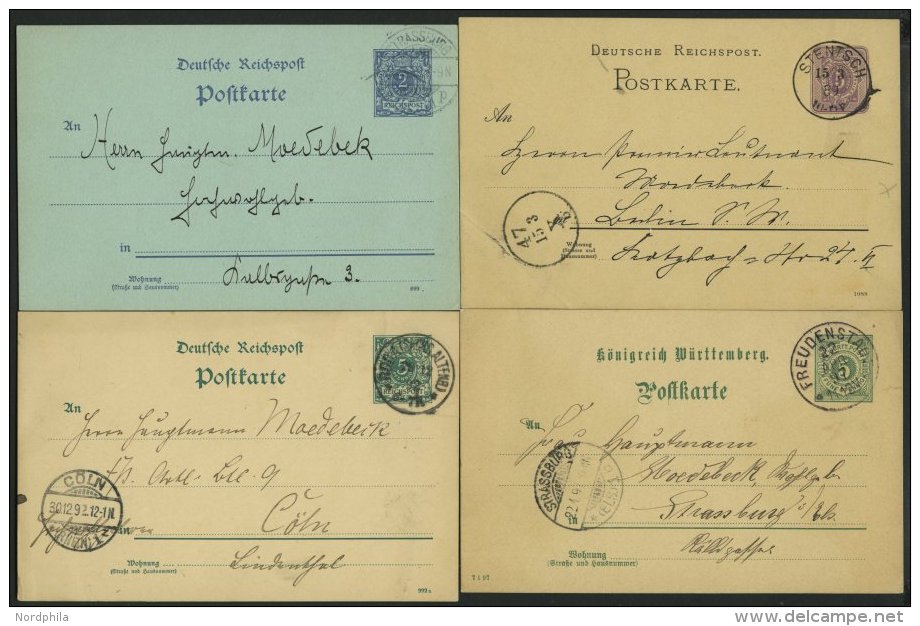 STRASSBURG
Deutsche Reichspost
Postkarte
2
REICHSPOST
An
Herrn Hauptm. Moedebeck
Hochwohlgeb.
in
Kalbsgasse 3.
Wohnung
(Straße und Hausnummer)
DEUTSCHE REICHSPOST.
POSTKARTE.
STENTSCH
15 3
89
An
Herrn Premier Leutnant
Moedebeck
Berlin S. W.
15 3
Wohnung
(Strasse und Hausnummer)
Kotzbach-Str 24 II
1088
Deutsche Reichspost
Postkarte
5
REICHSPOST
An
Herrn Hauptmann Moedebeck
Art. 9
CÖLN
30.12.92.12-1N.
Cöln
Lindenthal
Wohnung
(Straße und Hausnummer)
992a
Königreich Württemberg.
Postkarte
FREUDENSTADT
22
5
An
Hauptmann
Moedebeck
STRASSBURG
Strassburg i/Els.
Wohnung
(Strasse und Hausnummer)
7 1 97
Nordphila
delcampe.net